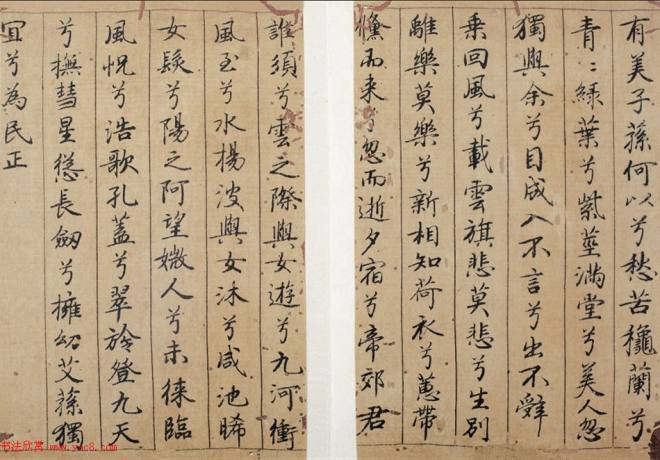 有美子蓀何以兮愁苦穐蘭兮
青〻緑葉兮紫莖滿堂兮美人忽
獨與余兮目成入不言兮出不辤
乗回風兮載雲旗悲莫悲兮生別
離樂莫樂兮新相知荷衣兮蕙帶
儵而来兮忽而逝夕宿兮帝郊君
誰須兮雲之際與女遊兮九河衝
風至兮水揚波與女沐兮咸池晞
女髮兮陽之阿望媺人兮未徠臨
風怳兮浩歌孔蓋兮翠旍登九天
兮撫彗星慫長劔兮擁幼艾蓀獨
宜兮為民正
书法欣赏 www.yac8.com